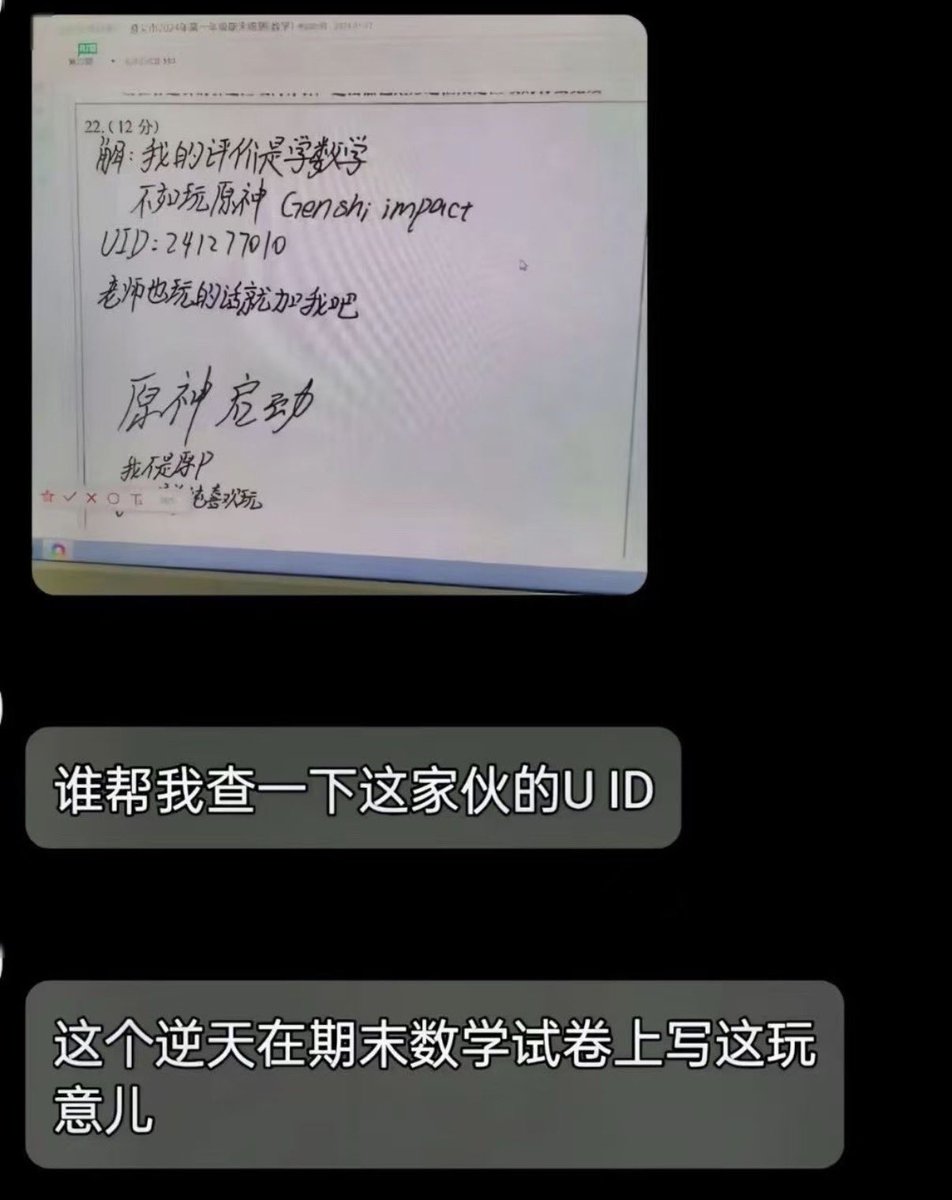 22.(12分)
解:我的评价是学数学
不如玩原神 Genshi impact
UID:241277010
老师也玩的话就加我吧
原神启动
我不是原P
也喜欢玩
谁帮我查一下这家伙的U ID
这个逆天在期末数学试卷上写这玩
意儿